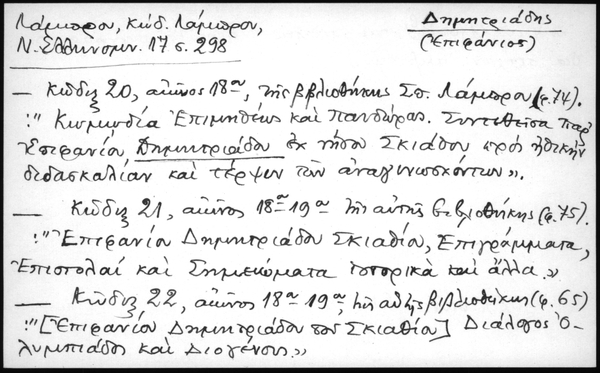 Λάμπρου, Κώδ. Λάμπρου,
Ν. Ἑλληνομν. 17 σ. 298
Δημητριάδης
(Ἐπιφάνιος)
— Κῶδιξ 20, αἰῶνος 18ου, τῆς βιβλιοθήκης Σπ. Λάμπρου (φ. 74).
:" Κωμῳδία Ἐπιμηθέως καὶ Πανδώρας. Συντεθεῖσα παρ'
Ἐπιφανίου Δημητριάδου ἐκ νήσου Σκιάθου πρὸς ἠθικὴν
διδασκαλίαν καὶ τέρψιν τῶν ἀναγινωσκόντων».
— Κῶδιξ 21, αἰῶνος 18ου-19ου τῆς αὐτῆς βιβλιοθήκης (φ. 75).
:"Ἐπιφανίου Δημητριάδου Σκιαθίου, Ἐπιγράμματα,
Ἐπιστολαί καὶ Σημειώματα ἱστορικὰ καὶ ἄλλα.»
— Κῶδιξ 22, αἰῶνος 18ου-19ου, τῆς αὐτῆς βιβλιοθήκης (φ. 65)
:"[Ἐπιφανίου Δημητριάδου τοῦ Σκιαθίου] Διάλογος Ὀ-
λυμπιάδος καὶ Διογένους.»